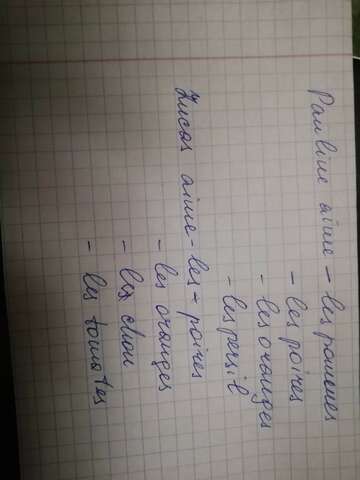 Pauline aime - les pommes
- les poires
- les oranges
- les persil
Lucas aime - les - poires
- les oranges
- les chou
- les tomates